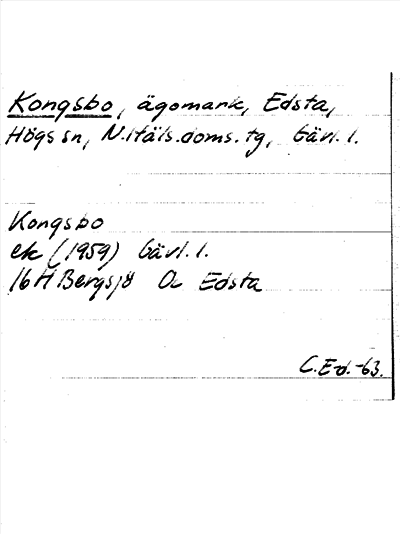 Kongsbo, ägomark, Edsta,
Högs sn, N. Häls. doms. tg, Gävl. l.
Kongsbo
ek (1959) Gävl. l.
16 H Bergsjö Edsta
C. Ed. -63.